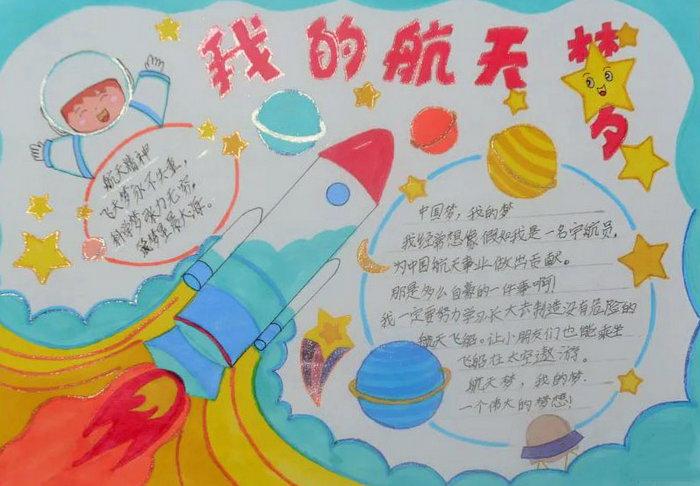 我的航天梦
航天精神
飞天梦永不失重，
科学梦张力无穷，
中国梦，我的梦
我经常想像假如我是一名宇航员，
为中国航天事业做出贡献。
那是多么自豪的一件事啊！
我一定要努力学习长大去制造没有危险的
航天飞船。让小朋友们也能乘坐
飞船在太空遨游。
航天梦，我的梫.
一个伟大的梦想！